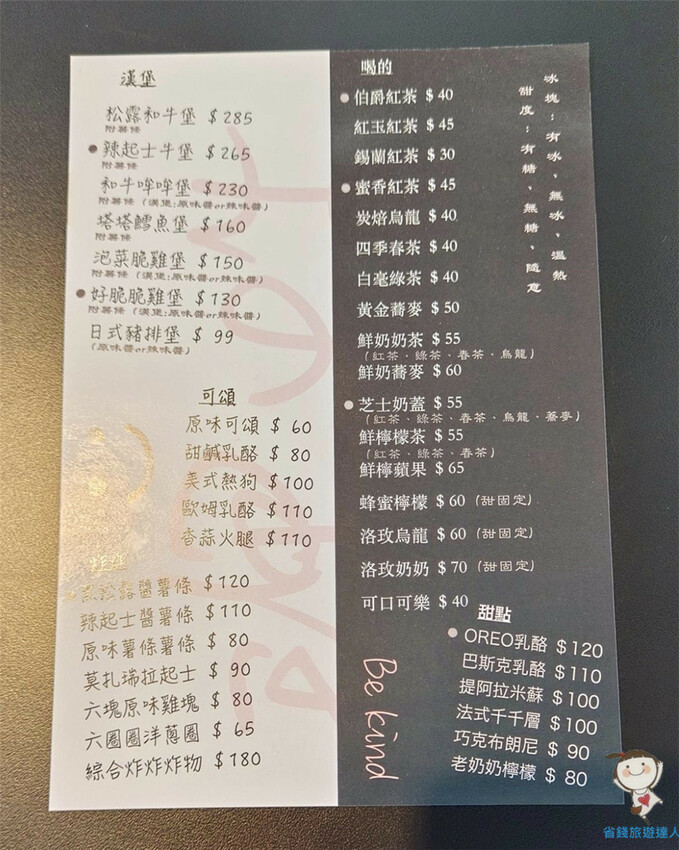 漢堡
松露和牛堡 $285
附薯條
辣起士牛堡 $265
附薯條
和牛哞哞堡 $230
附薯條 (漢堡:原味醬or辣味醬)
塔塔鱈魚堡 $160
附薯條
泡菜脆雞堡 $150
附薯條 (漢堡:原味醬or辣味醬)
好脆脆雞堡 $130
附薯條 (漢堡:原味醬or辣味醬)
日式豬排堡 $ 99
(原味醬or辣味醬)
可頌
原味可頌 $ 60
甜鹹乳酪 $ 80
美式熱狗 $100
歐姆乳酪 $110
香蒜火腿 $110
松露醬薯條 $120
辣起士醬薯條 $110
原味薯條薯條 $ 80
莫扎瑞拉起士 $ 90
六塊原味雞塊 $ 80
六圈圈洋蔥圈 $ 65
綜合炸炸炸物 $180
喝的
冰塊:有冰、無冰、溫熱
甜度:有糖、無糖、隨意
伯爵紅茶 $ 40
紅玉紅茶 $ 45
錫蘭紅茶 $ 30
蜜香紅茶 $ 45
炭焙烏龍 $ 40
四季春茶 $ 40
白毫綠茶 $ 40
黃金蕎麥 $ 50
鮮奶奶茶 $ 55
(紅茶、綠茶、春茶、烏龍)
鮮奶蕎麥 $ 60
芝士奶蓋 $ 55
(紅茶、綠茶、春茶、烏龍、蕎麥)
鮮檸檬茶 $ 55
(紅茶、綠茶、春茶)
鮮檸蘋果 $ 65
蜂蜜檸檬 $ 60 (甜固定)
洛玫烏龍 $ 60 (甜固定)
洛玫奶奶 $ 70 (甜固定)
可口可樂 $ 40
甜點
OREO乳酪 $120
巴斯克乳酪 $110
提阿拉米蘇 $100
法式千千層 $100
巧克布朗尼 $ 90
老奶奶檸檬 $ 80
Be kind
省錢旅遊達人